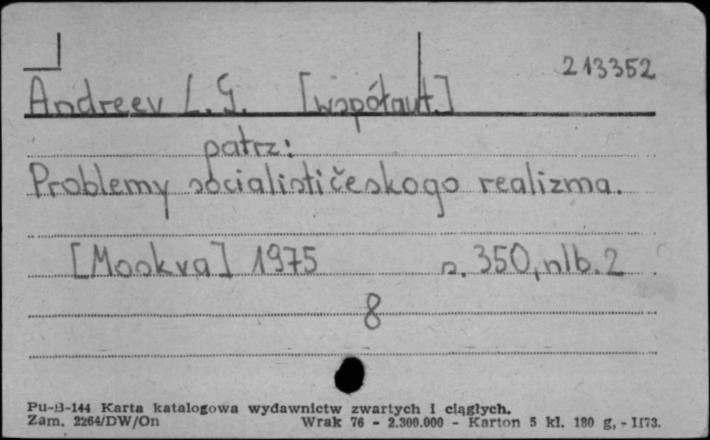 213352
Andreev L. G. [współaut.]
patrz:
Problemy socialističeskogo realizma.
[Moskva] 1975 s. 350, nlb. 2
8
Pu-B-144 Karta katalogowa wydawnictw zwartych i ciągłych.
Zam. 2264/DW/On Wrak 76 - 2.300.000 - Karton 5 kl. 180 g, - II73.